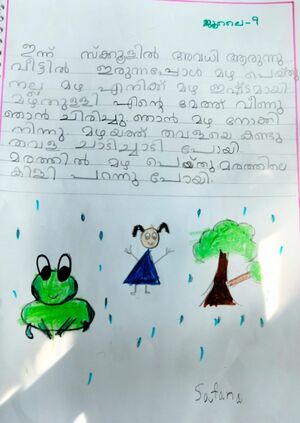 ജൂലൈ-9
ഇന്ന് സ്ക്കൂളിൽ അവധി ആരുന്നു
വീട്ടിൽ ഇരുന്നപ്പോൾ മഴ പെയ്തു
നല്ല മഴ എനിക്ക് മഴ ഇഷ്ടമായി
മഴതുള്ളി എന്റെ മേത്ത് വീണു
ഞാൻ ചിരിച്ചു ഞാൻ മഴ നോക്കി
നിന്നു മഴയത്ത് തവളയെ കണ്ടു
തവള ചാടിച്ചാടി പോയി
മരത്തിൽ മഴ പെയ്തു മരത്തിലെ
കിളി പറന്നു പോയി.
Safana